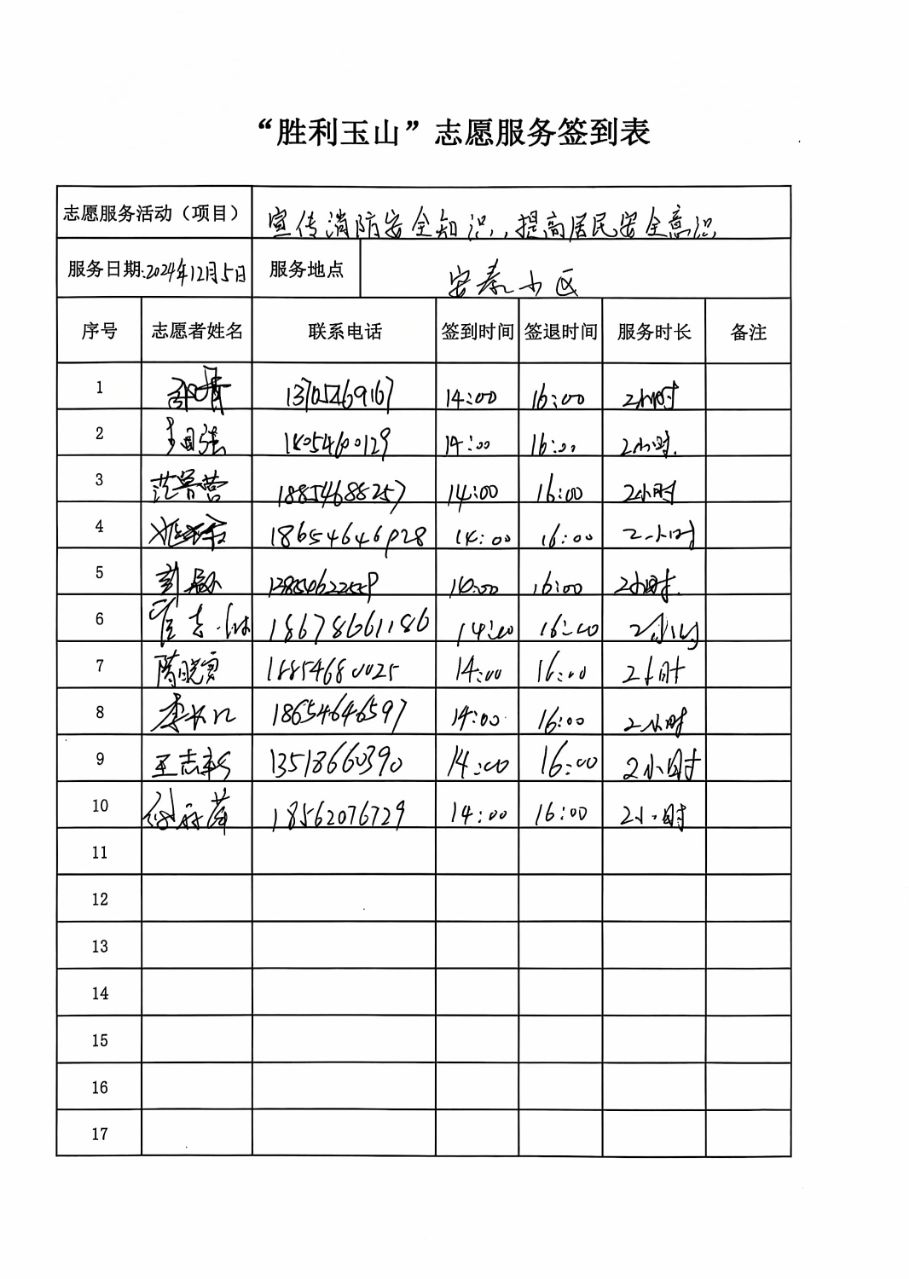 “胜利玉山”志愿服务签到表
志愿服务活动（项目） 宣传消防安全知识，提高居民安全意识
服务日期:2024年12月5日 服务地点 安泰小区
序号 志愿者姓名 联系电话 签到时间 签退时间 服务时长 备注
1 14:00 16:00 2小时
2 14:00 16:00 2小时.
3 18854688257 14:00 16:00 2小时
4 14:00 16:00 2小时
5 14:00 16:00 2小时.
6 18678661186 14:00 16:00 2小时
7 18854680025 14:00 16:00 2小时
8 18654646597 14:00 16:00 2小时
9 王志新 13518660390 14:00 16:00 2小时
10 18562076729 14:00 16:00 2小时
11
12
13
14
15
16
17